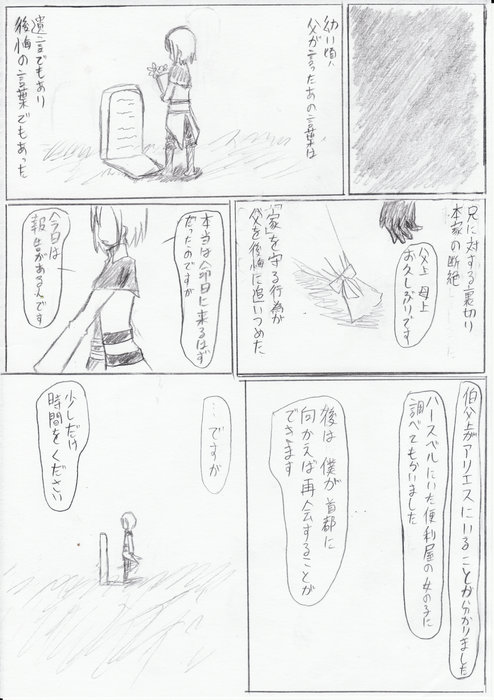 幼い頃
父が言ったあの言葉は
遺言でもあり
後悔の言葉でもあった
兄に対する裏切り
本家の断絶
父上 母上
お久しぶりです
「家」を守る行為が
父を後悔に追いつめた
本当は命日に来るはず
だったのですが
今日は
報告があるんです
伯父上がアリエスにいることが分かりました
ハースベルにいた便利屋の女の子に
調べてもらいました
後は 僕が首都に
向かえば再会することが
できます
…ですが
少しだけ
時間をください